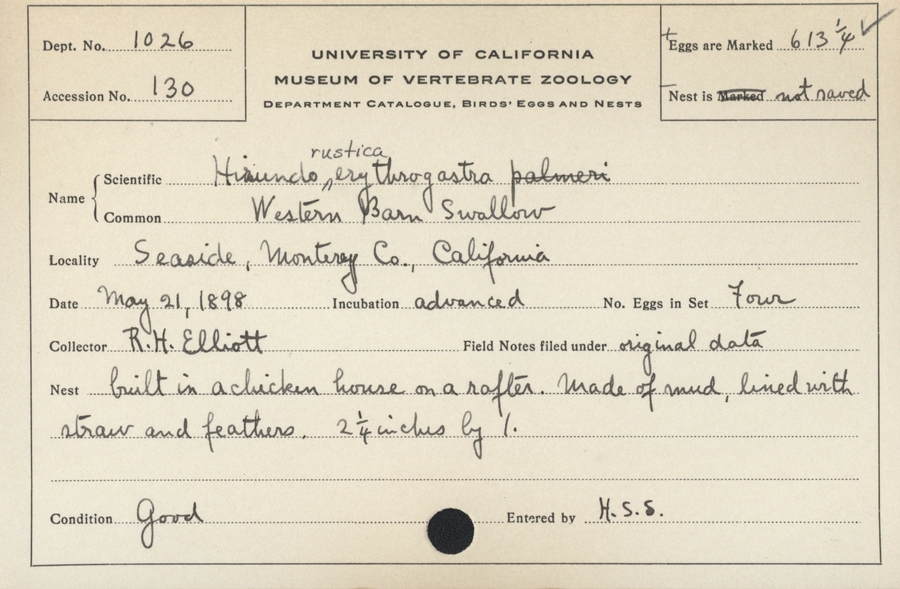 Dept. No. 1026
Accession No. 130
UNIVERSITY OF CALIFORNIA
MUSEUM OF VERTEBRATE ZOOLOGY
DEPARTMENT CATALOGUE, BIRDS' EGGS AND NESTS
+ Eggs are Marked 613 1/4 ✓
– Nest is Marked not saved
rustica
Name { Scientific Hirundo ^ erythrogastra palmeri
Common Western Barn Swallow
Locality Seaside, Monterey Co., California
Date May 21, 1898 Incubation advanced No. Eggs in Set Four
Collector R.H. Elliott Field Notes filed under original data
Nest built in a chicken house on a rafter. Made of mud, lined with
straw and feathers. 2 1/4 inches by 1.
Condition Good Entered by H.S.S.